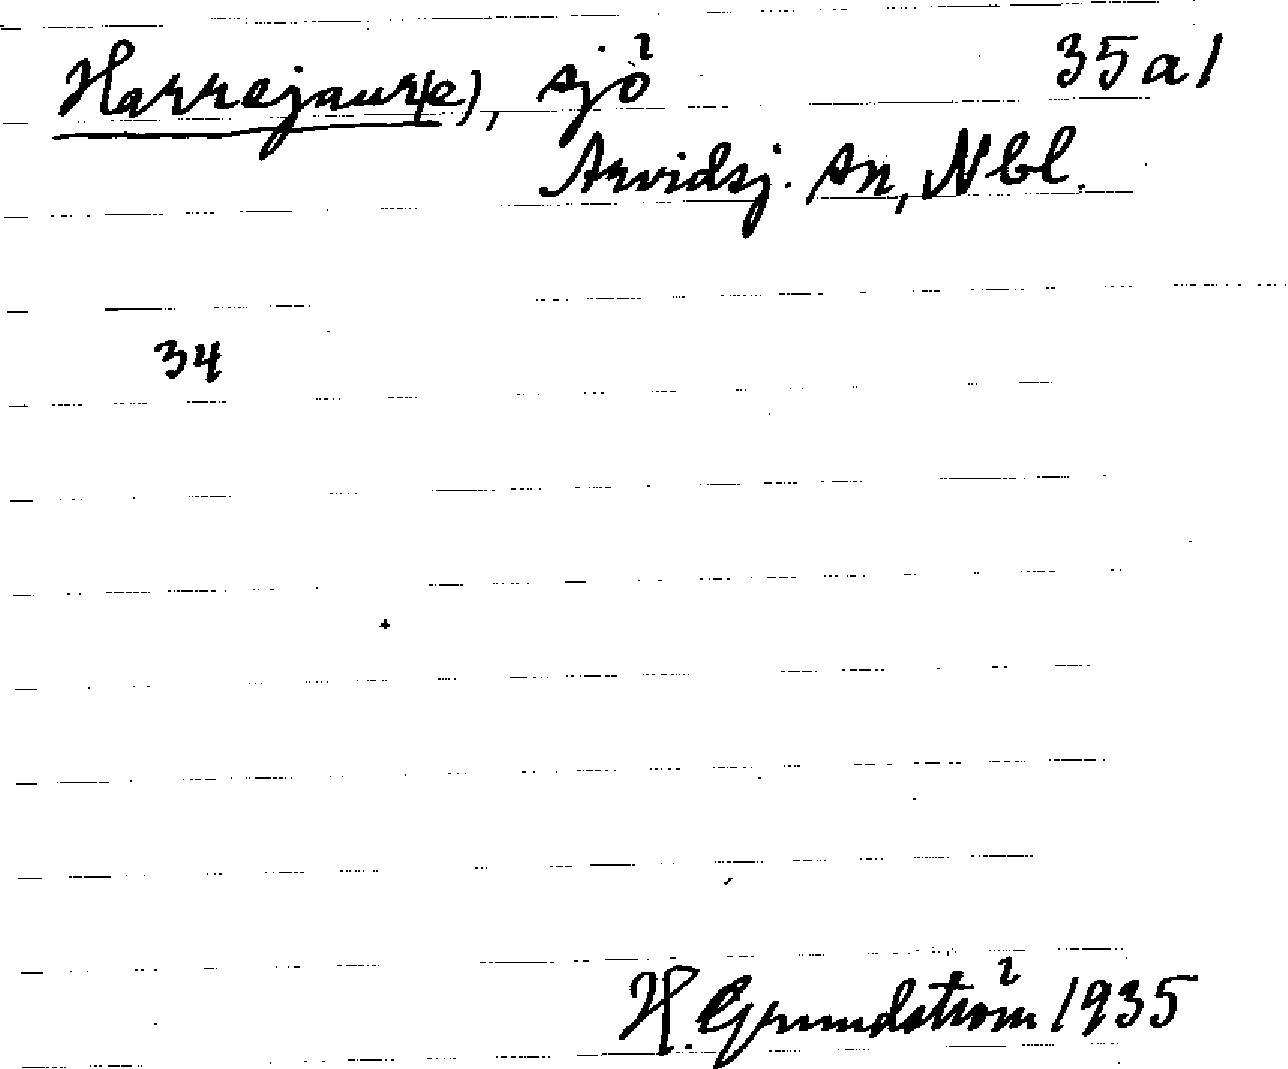 Harrejaur(e), sjö 35a1
Arvidsj. sn, Nbl.
34
H. Grundström 1935